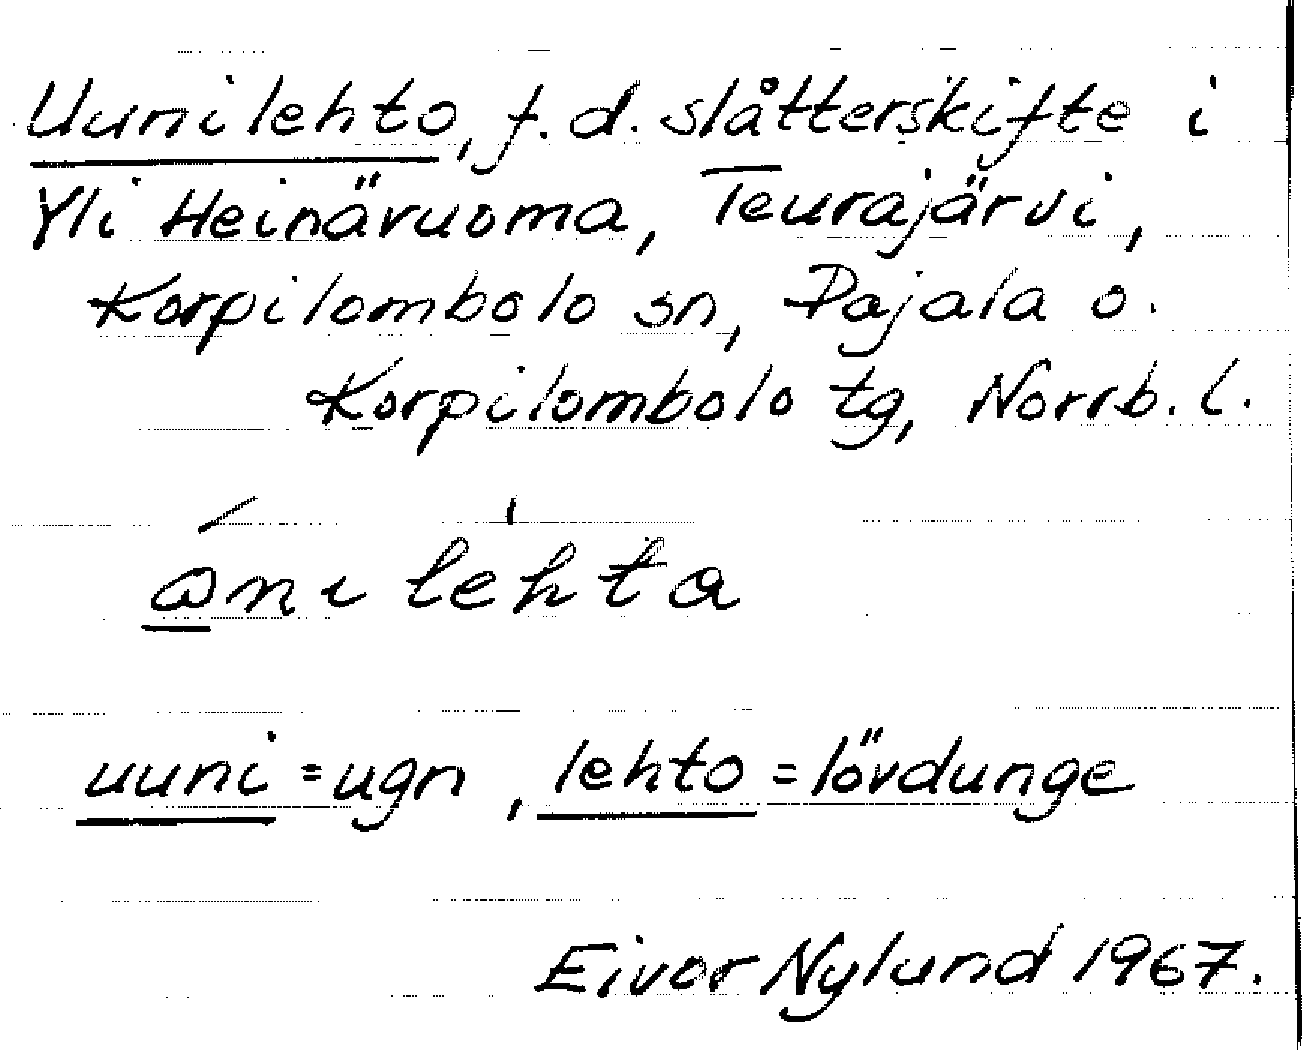 Uunilehto, f.d. slåtterskifte i
Yli Heinävuoma, Teurajärvi,
Korpilombolo sn, Pajala o.
Korpilombolo tg, Norrb. l.
uuni = ugn, lehto = lövdunge
Eivor Nylund 1967.